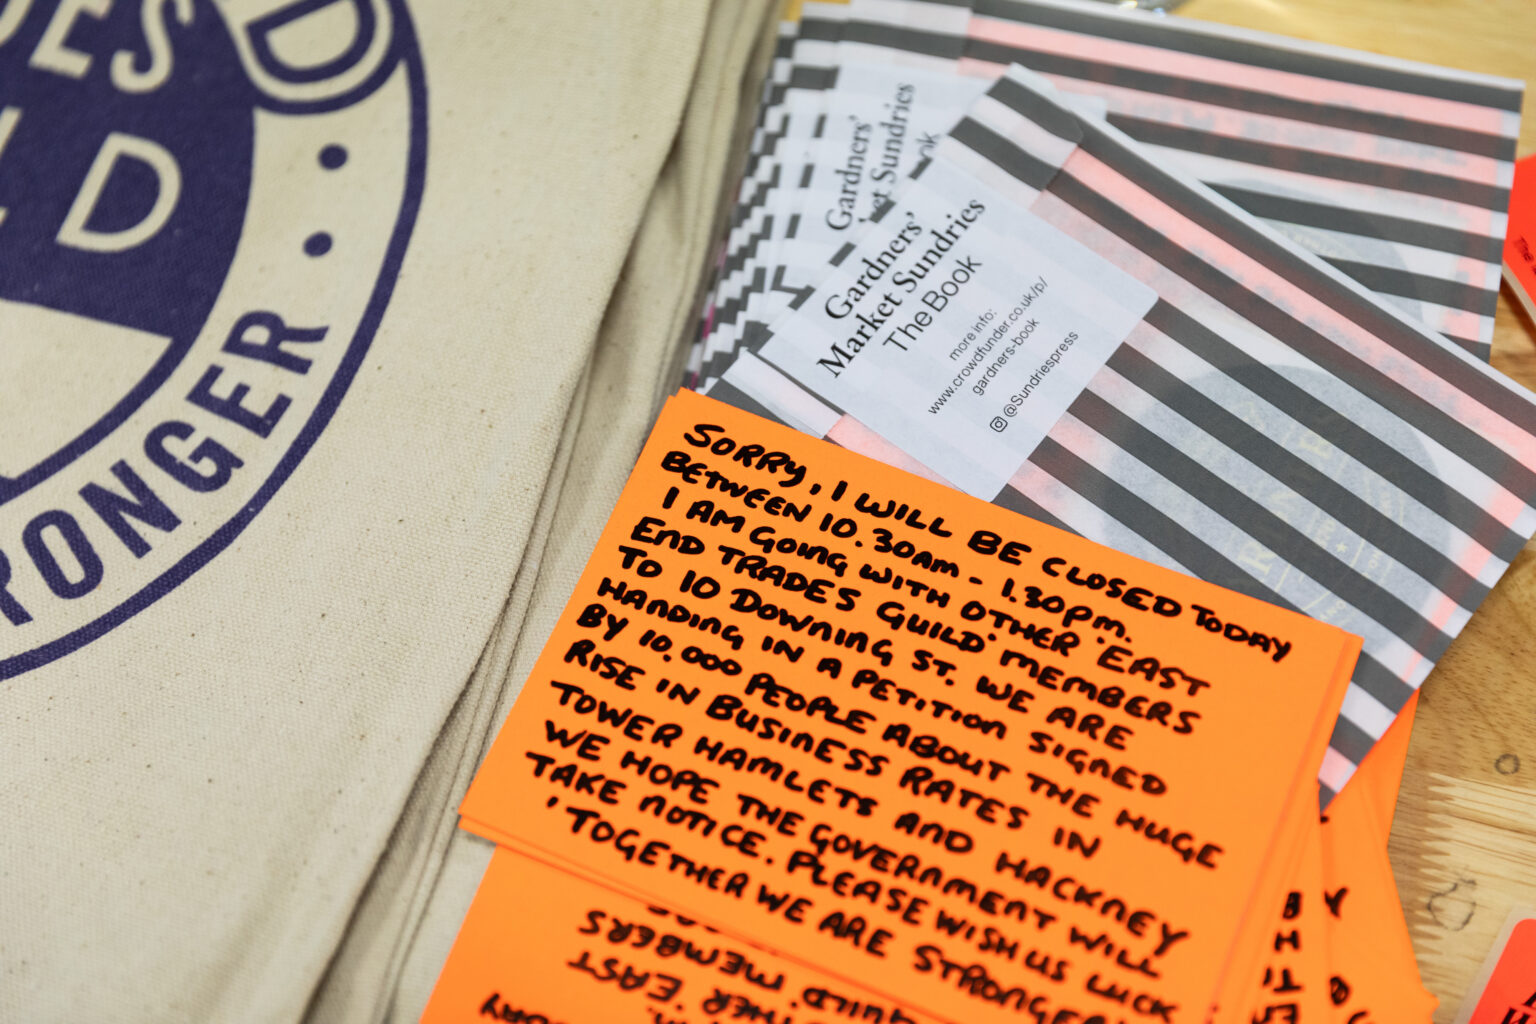 D
ONGER
Gardners'
Market Sundries
The Book
more info:
www.crowdfunder.co.uk/p/
gardners-book
@Sundriespress
Gardners'
Sundries
SORRY, I WILL BE CLOSED TODAY
BETWEEN 10.30am - 1.30pm.
I AM GOING WITH OTHER 'EAST
END TRADES GUILD' MEMBERS
TO 10 DOWNING ST. WE ARE
HANDING IN A PETITION SIGNED
BY 10.000 PEOPLE ABOUT THE HUGE
RISE IN BUSINESS RATES IN
TOWER HAMLETS AND HACKNEY
WE HOPE THE GOVERNMENT WILL
TAKE NOTICE. PLEASE WISH US LUCK
'TOGETHER WE ARE STRONGER
MEMBERS
'EAST